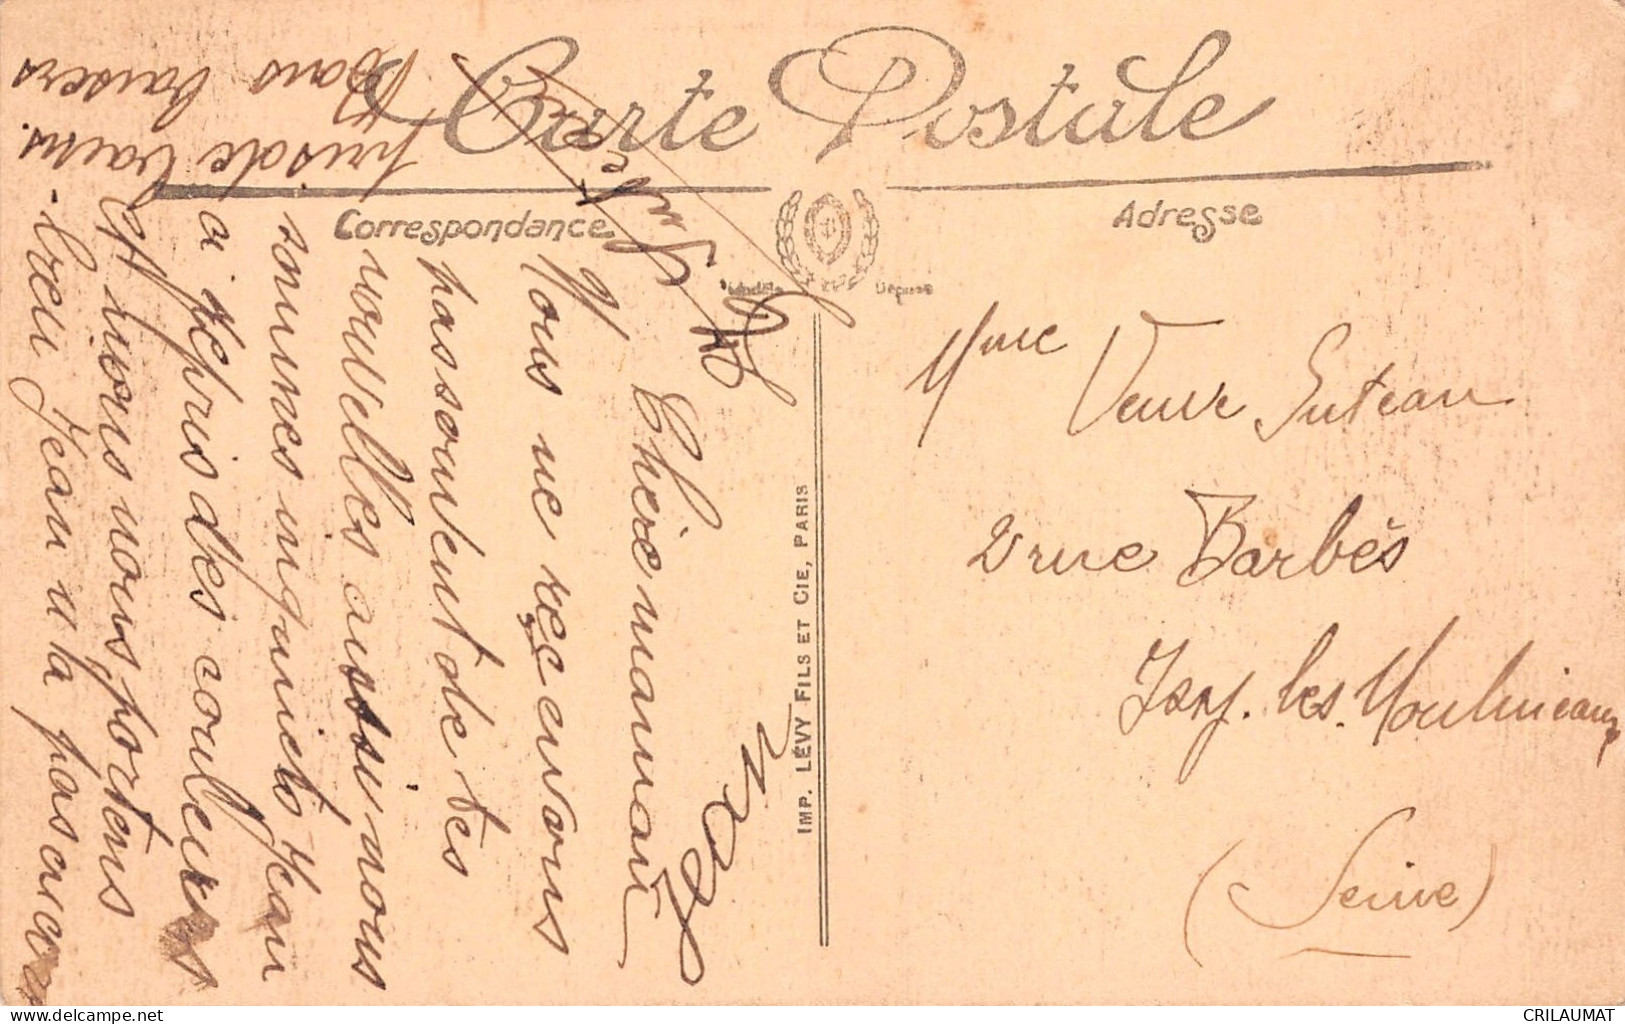 Carte Postale
Correspondance
Adresse
Chère maman
Nous ne recevons
pas souvent de tes
nouvelles aussi nous
sommes inquiets Jean
a repris des couleurs
et nous nous portons
bien Jean n'a pas encor
pris de bains.
Bons baisers
IMP. LÉVY FILS ET CIE, PARIS
Mme
Veuve Suteau
2 rue Barbès
Issy. les. Moulineaux
(Seine)
CRILAUMAT